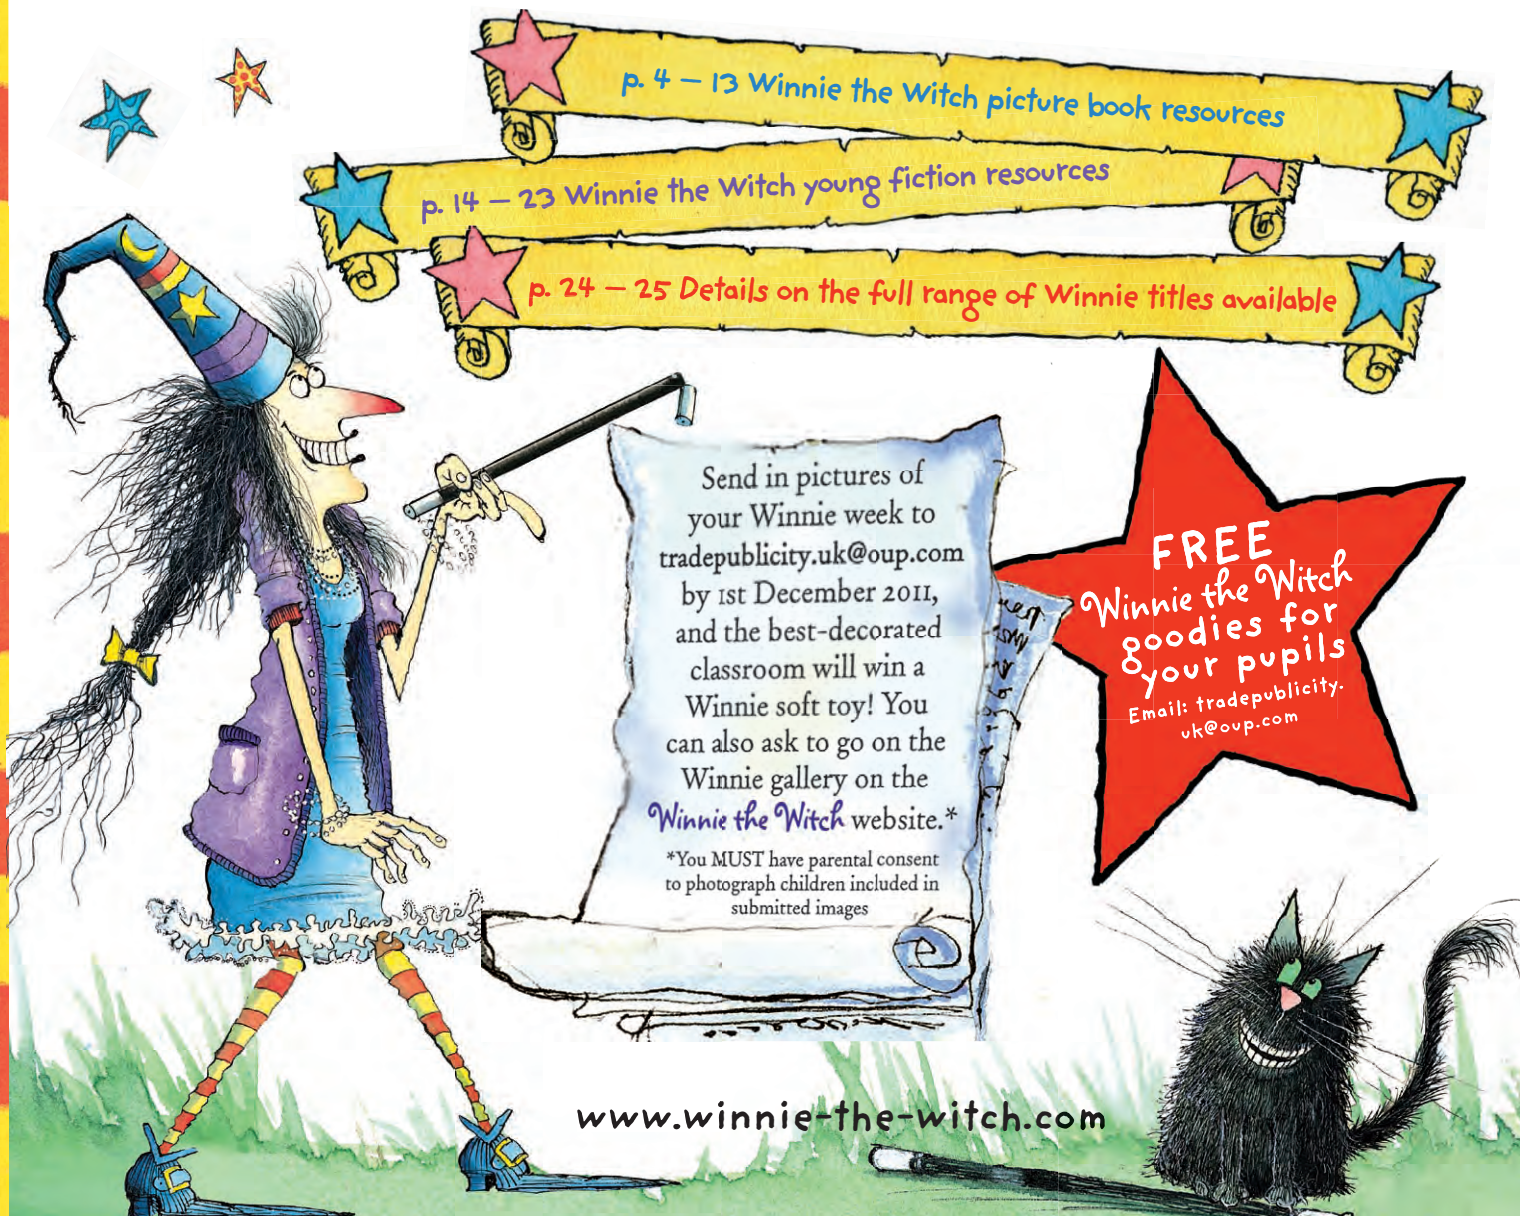 p. 4 – 13 Winnie the Witch picture book resources
p. 14 – 23 Winnie the Witch young fiction resources
p. 24 – 25 Details on the full range of Winnie titles available
Send in pictures of
your Winnie week to
tradepublicity.uk@oup.com
by 1st December 2011,
and the best-decorated
classroom will win a
Winnie soft toy! You
can also ask to go on the
Winnie gallery on the
Winnie the Witch website.*
*You MUST have parental consent
to photograph children included in
submitted images
FREE
Winnie the Witch
goodies for
your pupils
Email: tradepublicity.
uk@oup.com
www.winnie-the-witch.com